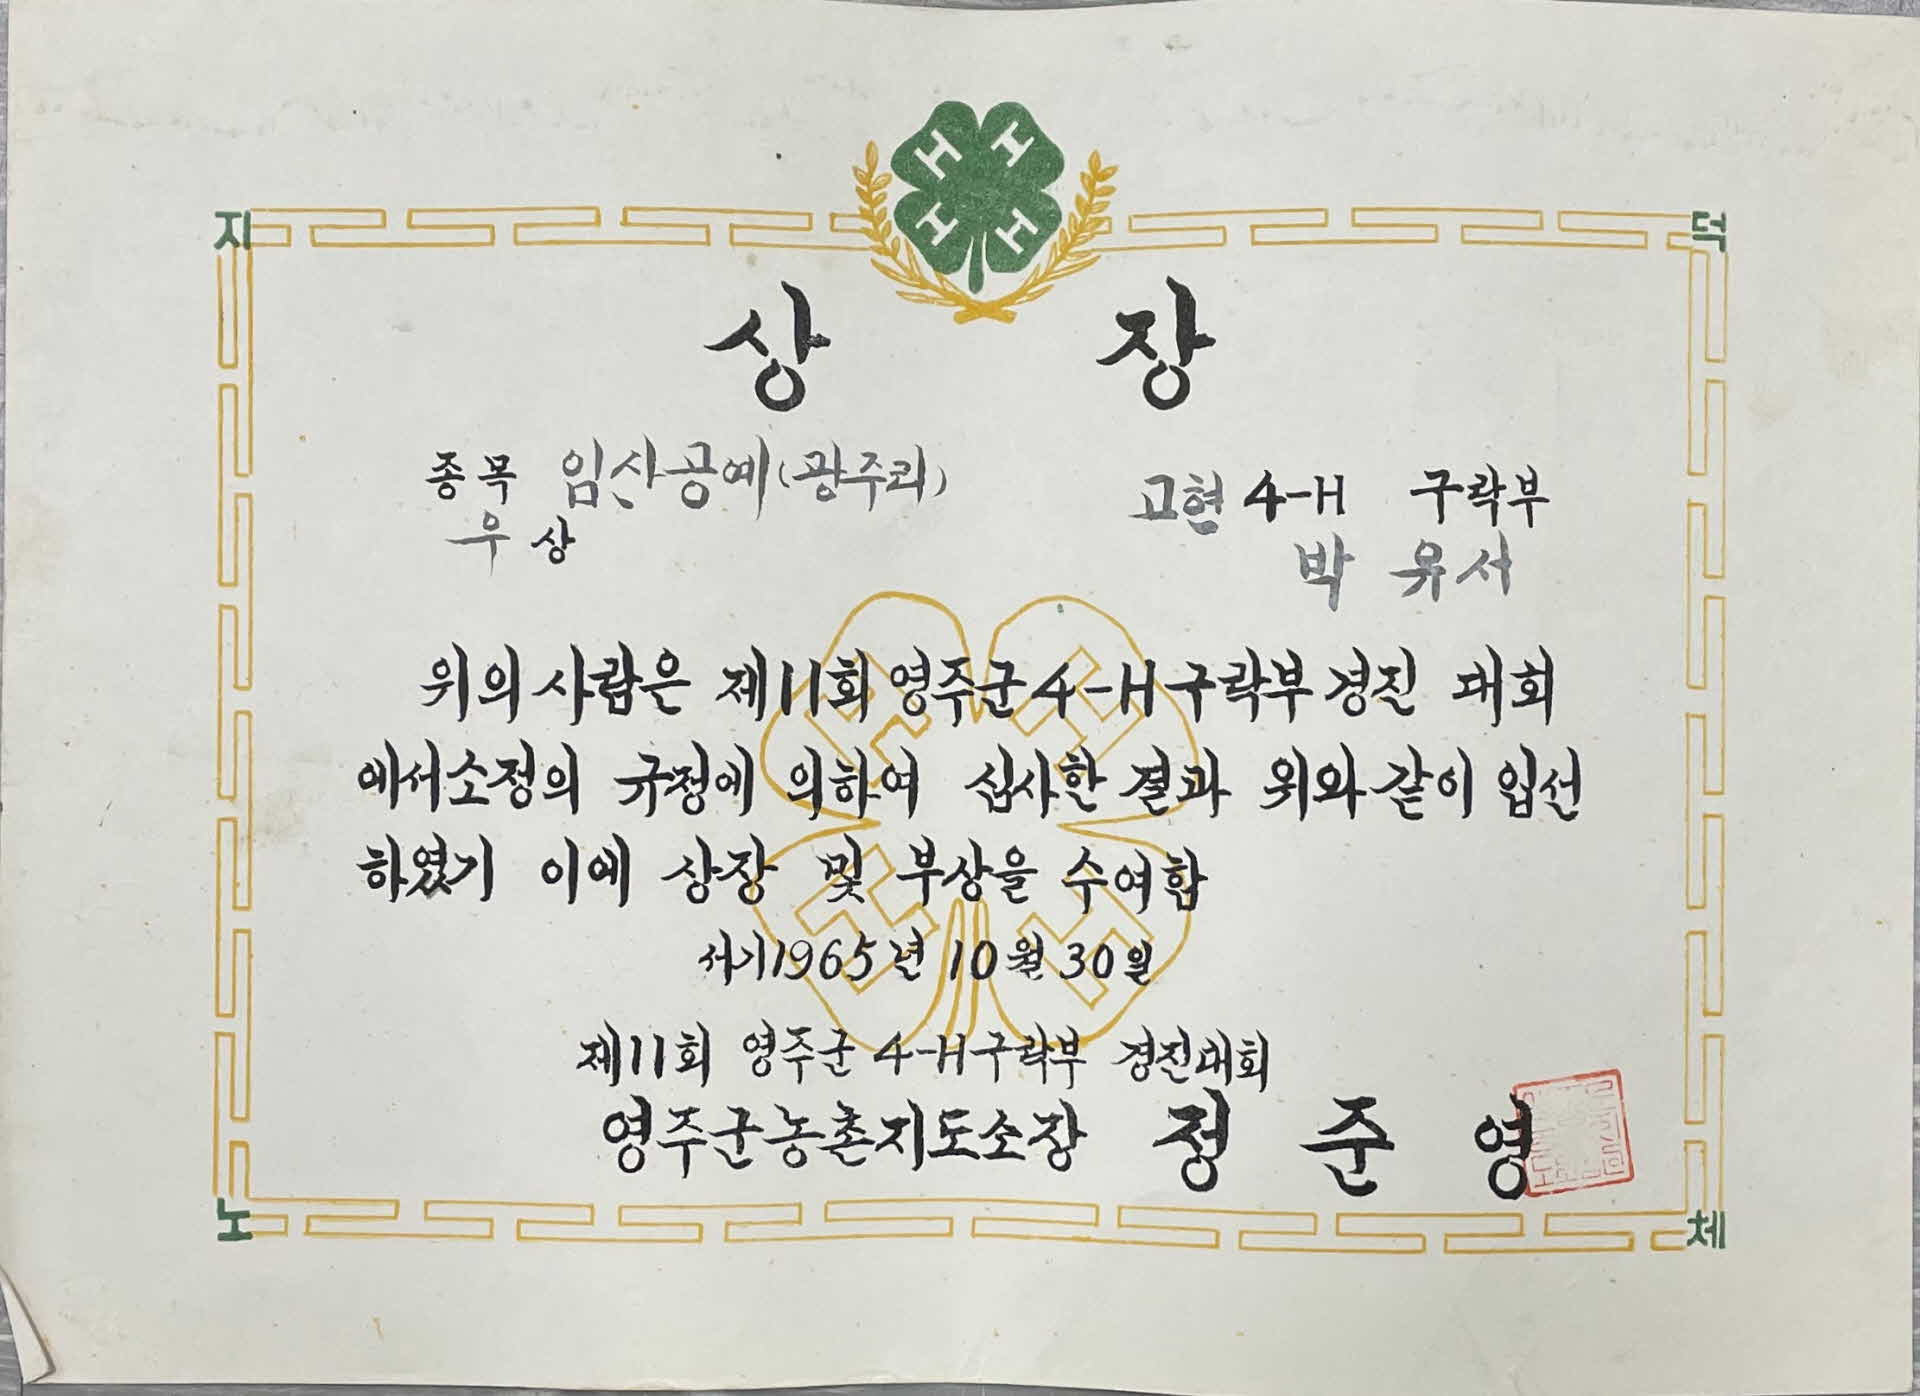 H H
H H
지 덕
상 장
종목 임산공예(광주리)
우상
고현 4-H 구락부
박유서
위의 사람은 제11회 영주군 4-H 구락부 경진 대회
에서 소정의 규정에 의하여 심사한 결과 위와 같이 입선
하였기 이에 상장 및 부상을 수여함
서기 1965년 10월 30일
제11회 영주군 4-H 구락부 경진대회
영주군농촌지도소장 정 준 영
노 체